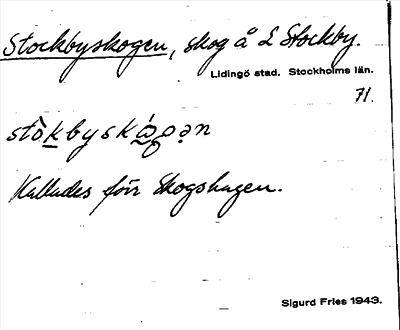 Stockbyskogen, skog å L Stockby.
Lidingö stad. Stockholms län.
71.
Kallades förr Skogshagen.
Sigurd Fries 1943.